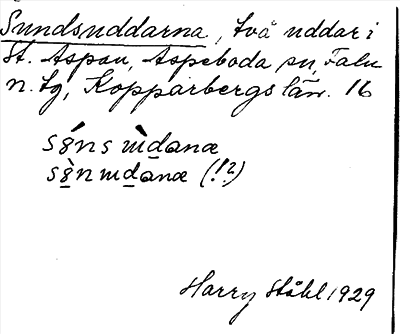 Sundsuddarna, två uddar i
St. Aspan, Aspeboda sn, Falu
n. tg, Kopparbergs län. 16
sén s ùdanæ
sèn udanæ (!?)
Harry Ståhl 1929